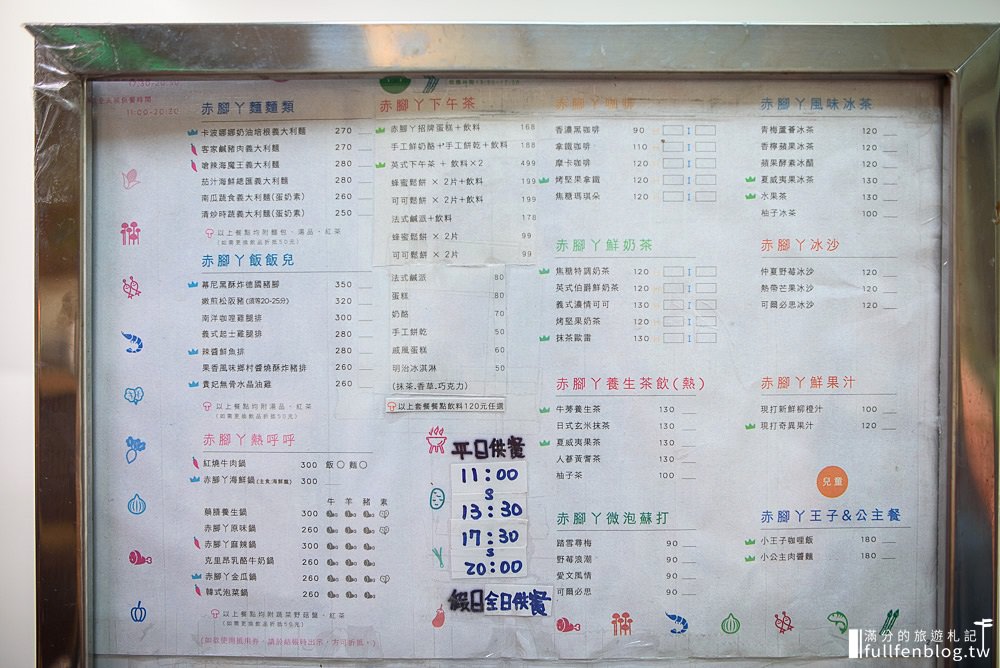 17:30-20:30
11:00-20:30
赤腳丫麵麵類
卡波娜娜奶油培根義大利麵 270
客家鹹豬肉義大利麵 270
嗆辣海魔王義大利麵 280
茄汁海鮮總匯義大利麵 280
南瓜蔬食義大利麵(蛋奶素) 260
清炒時蔬義大利麵(蛋奶素) 250
以上餐點均附麵包、湯品、紅茶
(如需更換飲品折抵50元)
赤腳丫飯飯兒
幕尼黑酥炸德國豬腳 350
嫩煎松阪豬(須等20-25分) 320
南洋咖哩雞腿排 300
義式起士雞腿排 280
辣醬鮮魚排 280
果香風味鄉村醬燒酥炸豬排 260
貴妃無骨水晶油雞 260
以上餐點均附湯品、紅茶
(如需更換飲品折抵50元)
赤腳丫熱呼呼
紅燒牛肉鍋 300 飯〇 麵〇
赤腳丫海鮮鍋(主食:海鮮麵) 300
牛 羊 豬 素
藥膳養生鍋 300
赤腳丫原味鍋 260
赤腳丫麻辣鍋 300
克里昂乳酪牛奶鍋 260
赤腳丫金瓜鍋 260
韓式泡菜鍋 260
以上餐點均附蔬菜野菇盤、紅茶
(如需更換飲品折抵50元)
(如欲使用抵用券，請於結帳時出示，方可折抵。)
赤腳丫下午茶
赤腳丫招牌蛋糕+飲料 168
手工鮮奶酪+手工餅乾+飲料 188
英式下午茶 + 飲料×2 499
蜂蜜鬆餅 × 2片+飲料 199
可可鬆餅 × 2片+飲料 199
法式鹹派+飲料 178
蜂蜜鬆餅 × 2片 99
可可鬆餅 × 2片 99
法式鹹派 80
蛋糕 80
奶酪 70
手工餅乾 50
戚風蛋糕 60
明治冰淇淋 50
(抹茶.香草.巧克力)
以上套餐餐點飲料120元任選
平日供餐
11:00
s
13:30
17:30
s
20:00
假日全日供餐
赤腳丫咖啡
香濃黑咖啡 90 H I
拿鐵咖啡 110 H I
摩卡咖啡 120 H I
烤堅果拿鐵 120 H I
焦糖瑪琪朵 120 H I
赤腳丫鮮奶茶
焦糖特調奶茶 120 H I
英式伯爵鮮奶茶 120 H I
義式濃情可可 130 H I
烤堅果奶茶 130 H I
抹茶歐蕾 130 H I
赤腳丫養生茶飲(熱)
牛蒡養生茶 130
日式玄米抹茶 130
夏威夷果茶 130
人蔘黃耆茶 130
柚子茶 100
赤腳丫微泡蘇打
踏雪尋梅 90
野莓浪潮 90
愛文風情 90
可爾必思 90
赤腳丫風味冰茶
青梅蘆薈冰茶 120
香檸蘋果冰茶 120
蘋果酵素冰醋 120
夏威夷果冰茶 130
水果茶 130
柚子冰茶 100
赤腳丫冰沙
仲夏野莓冰沙 120
熱帶芒果冰沙 120
可爾必思冰沙 120
赤腳丫鮮果汁
現打新鮮柳橙汁 100
現打奇異果汁 120
兒童
赤腳丫王子&公主餐
小王子咖哩飯 180
小公主肉醬麵 180
滿分的旅遊札記
fullfenblog.tw